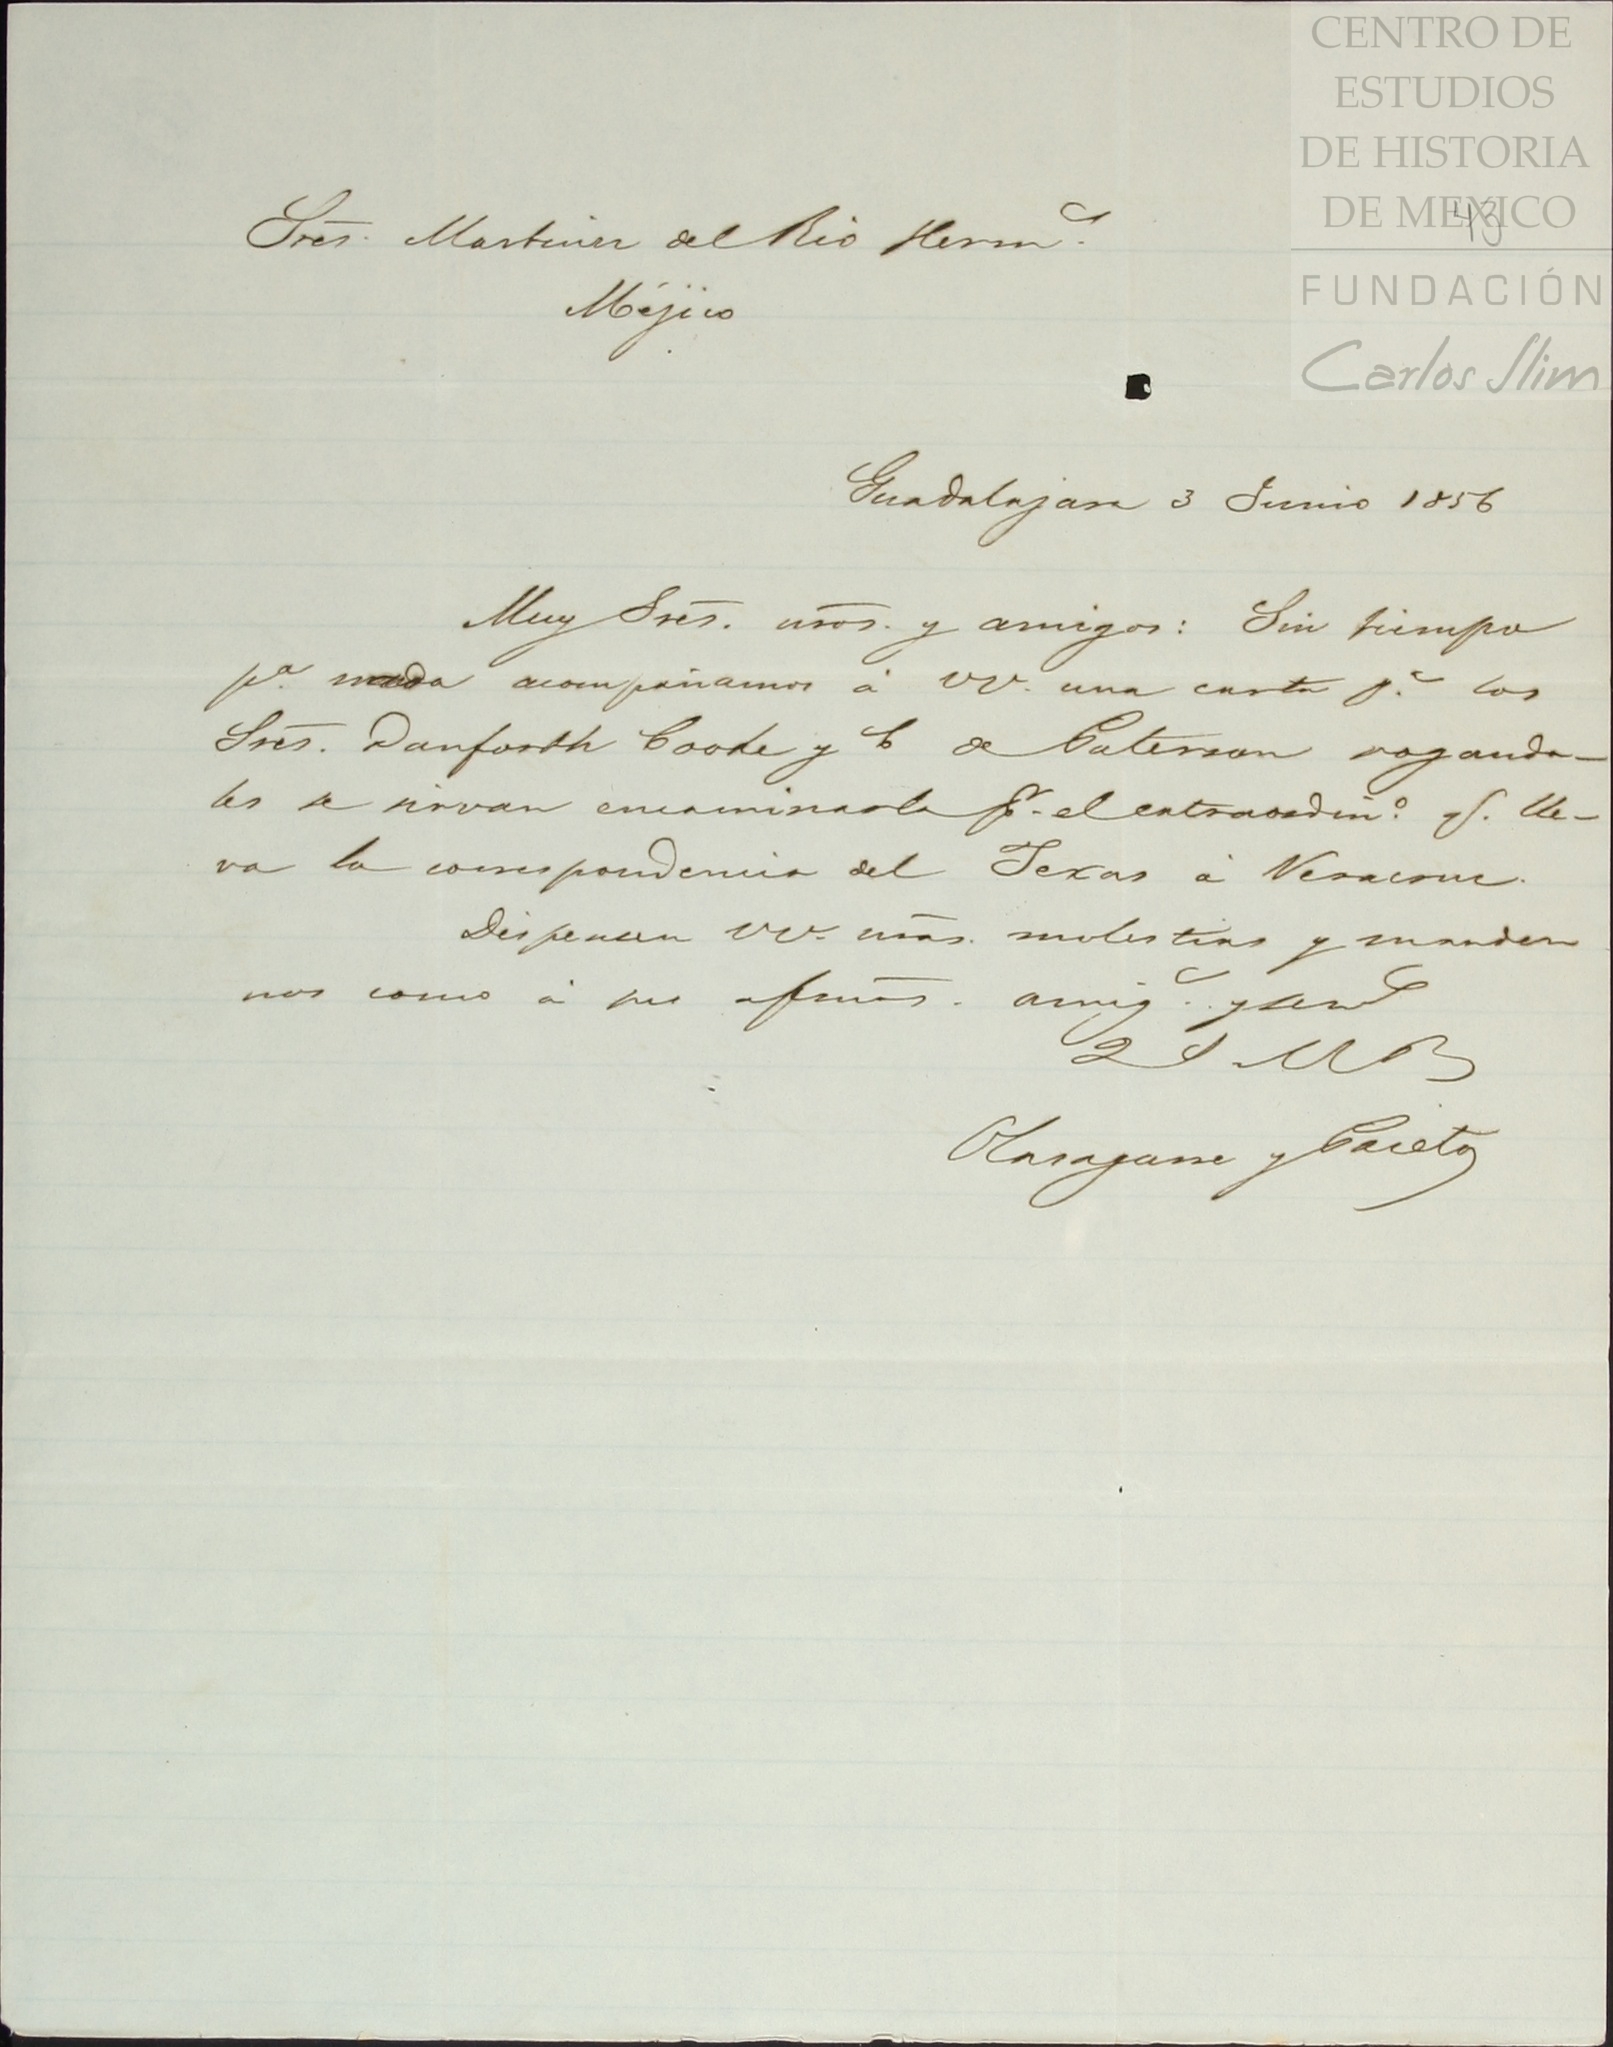 CENTRO DE
ESTUDIOS
DE HISTORIA
DE MEXICO
43
FUNDACIÓN
Carlos Slim
Sres. Martinez del Rio Herms.
Méjico
Guadalajara 3 Junio 1856
Muy Sres. nros. y amigos: Sin tiempo
pa. nada acompañamos á VV. una carta pa. los
Sres. Danforth Cooke y C de Paterson rogando-
les se sirvan encaminarla pr. el extraordino. qe. lle-
va la correspondencia del Texas á Veracruz.
Dispensen VV. nras. molestias y manden
nos como á sus afmos. amigs. y servs
Q S M B
Olasagarre y Prieto